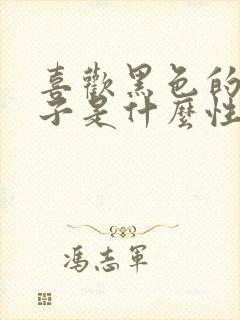 喜歡黑色的
子是什麼性
馮志軍